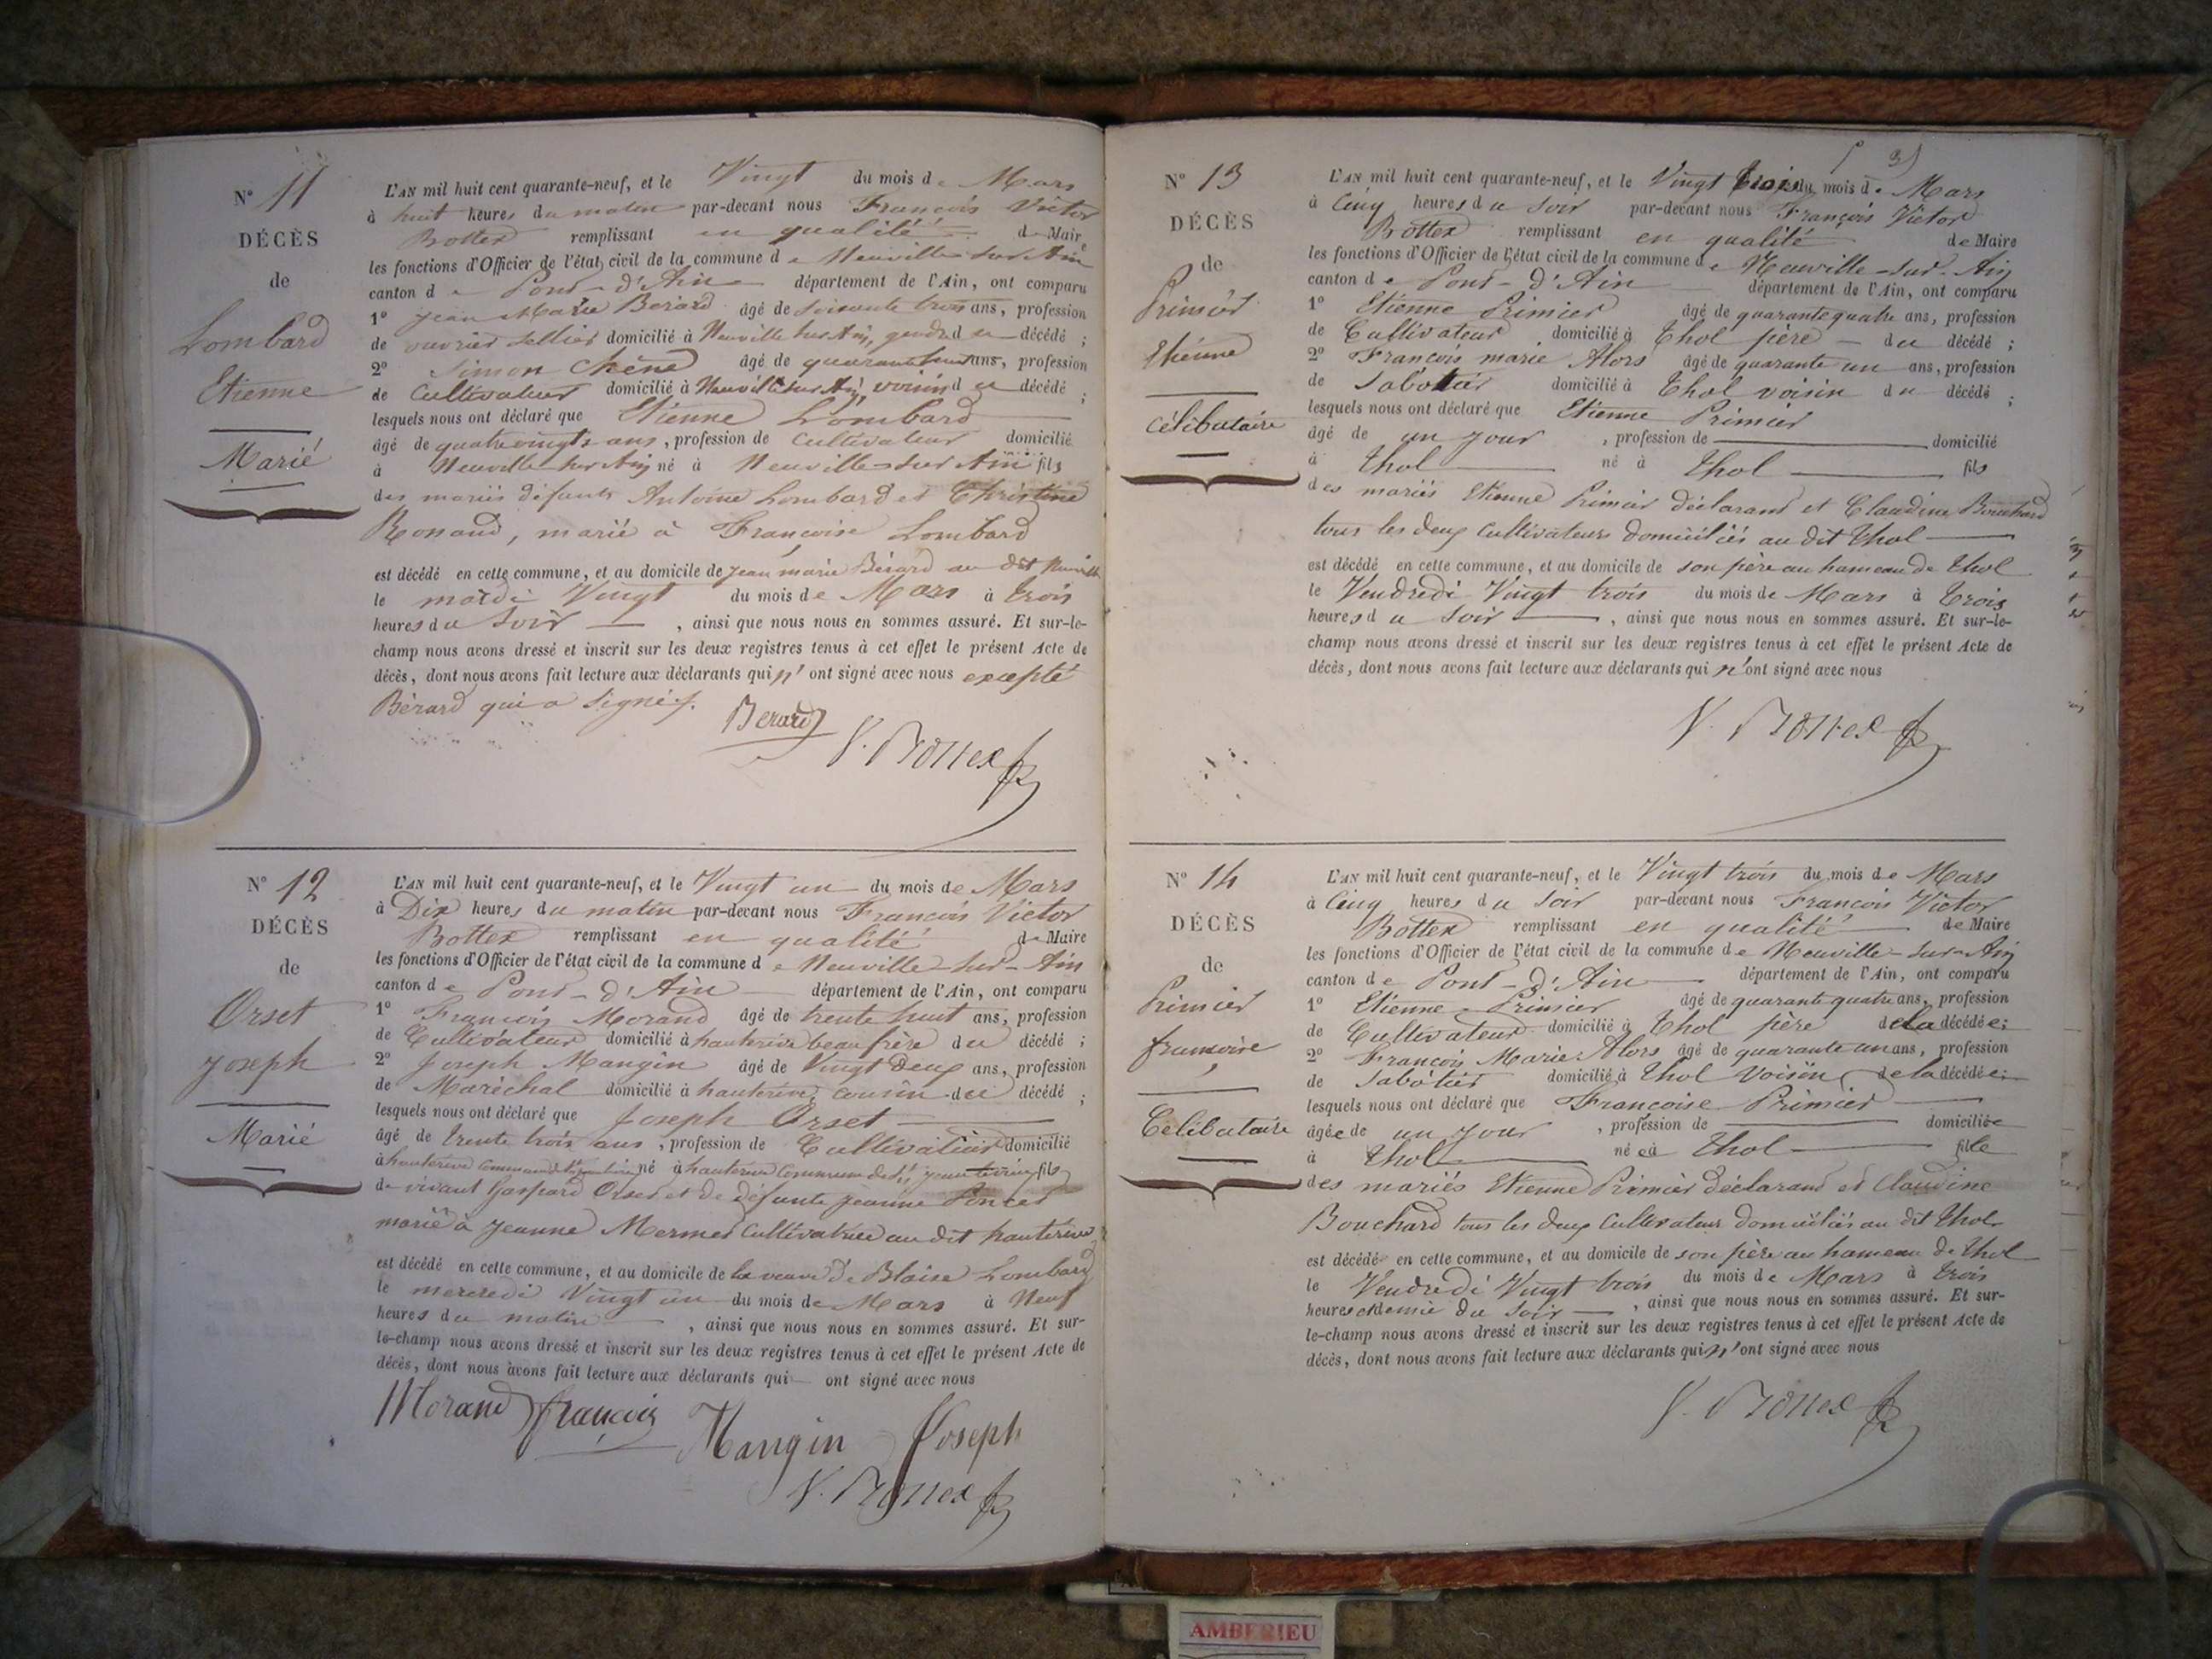 N° 11
DÉCÈS
de
Lombard
Etienne
Marié
L'AN mil huit cent quarante-neuf, et le Vingt du mois de Mars
à huit heures du matin par-devant nous François Victor
Bottex remplissant en qualité de Maire
les fonctions d'Officier de l'état civil de la commune de Neuville sur Ain
canton de Pont-d'Ain département de l'Ain, ont comparu
1° Jean Marie Bérard âgé de soixante trois ans, profession
de ouvrier sellier domicilié à Neuville sur Ain, gendre du décédé ;
2° Simon Chêne âgé de quarante ans, profession
de Cultivateur domicilié à Neuville sur Ain, voisin du décédé ;
lesquels nous ont déclaré que Etienne Lombard
âgé de quatre vingts ans, profession de Cultivateur domicilié
à Neuville sur Ain né à Neuville-sur Ain fils
des mariés défunts Antoine Lombard et Christine
Ronaud, marié à Françoise Lombard
est décédé en cette commune, et au domicile de Jean marie Bérard au dit Neuville
le mardi Vingt du mois de Mars à trois
heures du Soir , ainsi que nous nous en sommes assuré. Et sur-le-
champ nous avons dressé et inscrit sur les deux registres tenus à cet effet le présent Acte de
décès, dont nous avons fait lecture aux déclarants qui n'ont signé avec nous excepté
Bérard qui a signé.
Berard
V. Bottex
N° 12
DÉCÈS
de
Orset
Joseph
Marié
L'AN mil huit cent quarante-neuf, et le Vingt un du mois de Mars
à Dix heures du matin par-devant nous François Victor
Bottex remplissant en qualité de Maire
les fonctions d'Officier de l'état civil de la commune de Neuville-sur-Ain
canton de Pont-d'Ain département de l'Ain, ont comparu
1° François Morand âgé de trente huit ans, profession
de Cultivateur domicilié à hauterive beau frère du décédé ;
2° Joseph Mangin âgé de Vingt Deux ans, profession
de Maréchal domicilié à hauterive, cousin du décédé ;
lesquels nous ont déclaré que Joseph Orset
âgé de trente trois ans, profession de Cultivateur domicilié
à hauterive né à hauterive Commune de fils
de vivant Gaspard Orset et de défunte Jeanne Poncet
marié à Jeanne Mermet Cultivatrice au dit hauterive
est décédé en cette commune, et au domicile de la veuve de Blaise Lombard
le mercredi Vingt un du mois de Mars à Neuf
heures du matin , ainsi que nous nous en sommes assuré. Et sur-
le-champ nous avons dressé et inscrit sur les deux registres tenus à cet effet le présent Acte de
décès, dont nous avons fait lecture aux déclarants qui ont signé avec nous
Morand françois
Mangin Joseph
V. Bottex
N° 13
DÉCÈS
de
Primier
Etienne
Célibataire
L'AN mil huit cent quarante-neuf, et le Vingt trois du mois de Mars
à Cinq heures du Soir par-devant nous François Victor
Bottex remplissant en qualité de Maire
les fonctions d'Officier de l'état civil de la commune de Neuville-sur-Ain
canton de Pont-d'Ain département de l'Ain, ont comparu
1° Etienne Primier âgé de quarante quatre ans, profession
de Cultivateur domicilié à Thol père du décédé ;
2° François marie Alors âgé de quarante un ans, profession
de Sabotier domicilié à Thol voisin du décédé ;
lesquels nous ont déclaré que Etienne Primier
âgé de un jour , profession de domicilié
à Thol né à Thol fils
des mariés Etienne Primier déclarant et Claudine Bouchard
tous les deux Cultivateurs domiciliés au dit Thol
est décédé en cette commune, et au domicile de son père au hameau de Thol
le Vendredi Vingt trois du mois de Mars à Trois
heures du Soir , ainsi que nous nous en sommes assuré. Et sur-le-
champ nous avons dressé et inscrit sur les deux registres tenus à cet effet le présent Acte de
décès, dont nous avons fait lecture aux déclarants qui n'ont signé avec nous
V. Bottex
N° 14
DÉCÈS
de
Primier
françoise
Célibataire
L'AN mil huit cent quarante-neuf, et le Vingt trois du mois de Mars
à Cinq heures du Soir par-devant nous François Victor
Bottex remplissant en qualité de Maire
les fonctions d'Officier de l'état civil de la commune de Neuville-sur-Ain
canton de Pont-d'Ain département de l'Ain, ont comparu
1° Etienne Primier âgé de quarante quatre ans, profession
de Cultivateur domicilié à Thol père de la décédée ;
2° François Marie Alors âgé de quarante un ans, profession
de Sabotier domicilié à Thol Voisin de la décédée ;
lesquels nous ont déclaré que Françoise Primier
âgée de un jour , profession de domiciliée
à Thol née à Thol fille
des mariés Etienne Primier déclarant et Claudine
Bouchard tous les deux Cultivateurs domiciliés au dit Thol
est décédé en cette commune, et au domicile de son père au hameau de Thol
le Vendredi Vingt trois du mois de Mars à trois
heures et demie du Soir , ainsi que nous nous en sommes assuré. Et sur-
le-champ nous avons dressé et inscrit sur les deux registres tenus à cet effet le présent Acte de
décès, dont nous avons fait lecture aux déclarants qui n'ont signé avec nous
V. Bottex
AMBERIEU